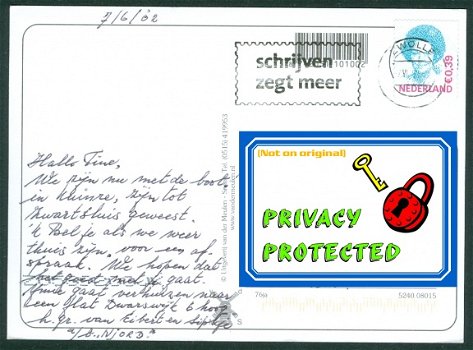 7/6/'02
schrijven
zegt meer
101002
ZWOLLE
NEDERLAND €0,39
Hallo Tine,
We zijn nu met de boot
in Kuinre, zijn tot
Zwartsluis geweest.
'k Bel je als we weer
thuis zijn, voor een af-
spraak. We hopen dat
het goed met je gaat.
gaat verhuizen naar
een flat
h. gr. van Eibert en
a/b "NJORD"
(Not on original)
PRIVACY
PROTECTED
© Uitgeverij van der Meulen - Sneek Tel. (0515) 419953
www.vandermeulen.nl
5240 08015